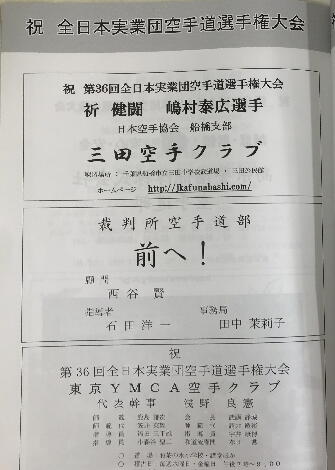 祝 全日本実業団空手道選手権大会
祝 第36回全日本実業団空手道選手権大会
祈 健闘 嶋村泰広選手
日本空手協会 船橋支部
三田空手クラブ
ホームページ http://jkafunabashi.com/
裁判所空手道部
前へ！
顧問
西谷 賢
指導者
石田洋一
事務局
田中茉莉子
祝
第36回全日本実業団空手道選手権大会
東京YMCA空手クラブ
代表幹事 浅野良憲